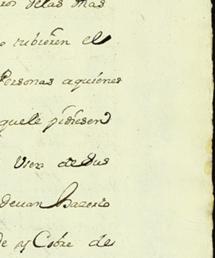 ros delas mas
o tubieren el
Personas aquienes
quele pidiesen
Vien de sus
devan Hazerlo
de y Cobre de